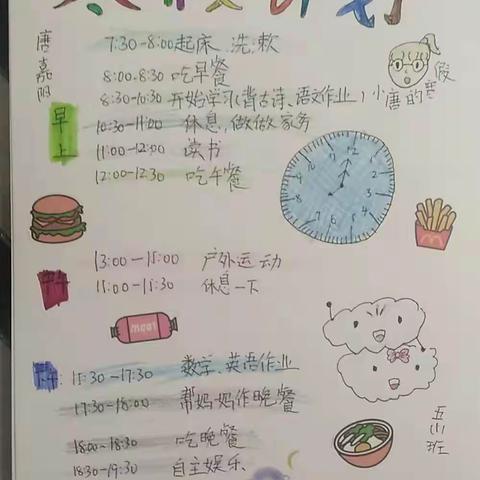 寒假计划
唐嘉阳
小唐的寒假
早上
7:30-8:00起床、洗漱
8:00-8:30 吃早餐
8:30-10:30 开始学习(背古诗、语文作业)
10:30-11:00 休息,做做家务
11:00-12:00 读书
12:00-12:30 吃午餐
12
1
2
3
4
5
6
7
8
9
10
11
中午
13:00-15:00 户外运动
15:00-15:30 休息一下
meat
下午
15:30-17:30 数学、英语作业
17:30-18:00 帮妈妈作晚餐
18:00-18:30 吃晚餐
18:30-19:30 自主娱乐
五(1)班